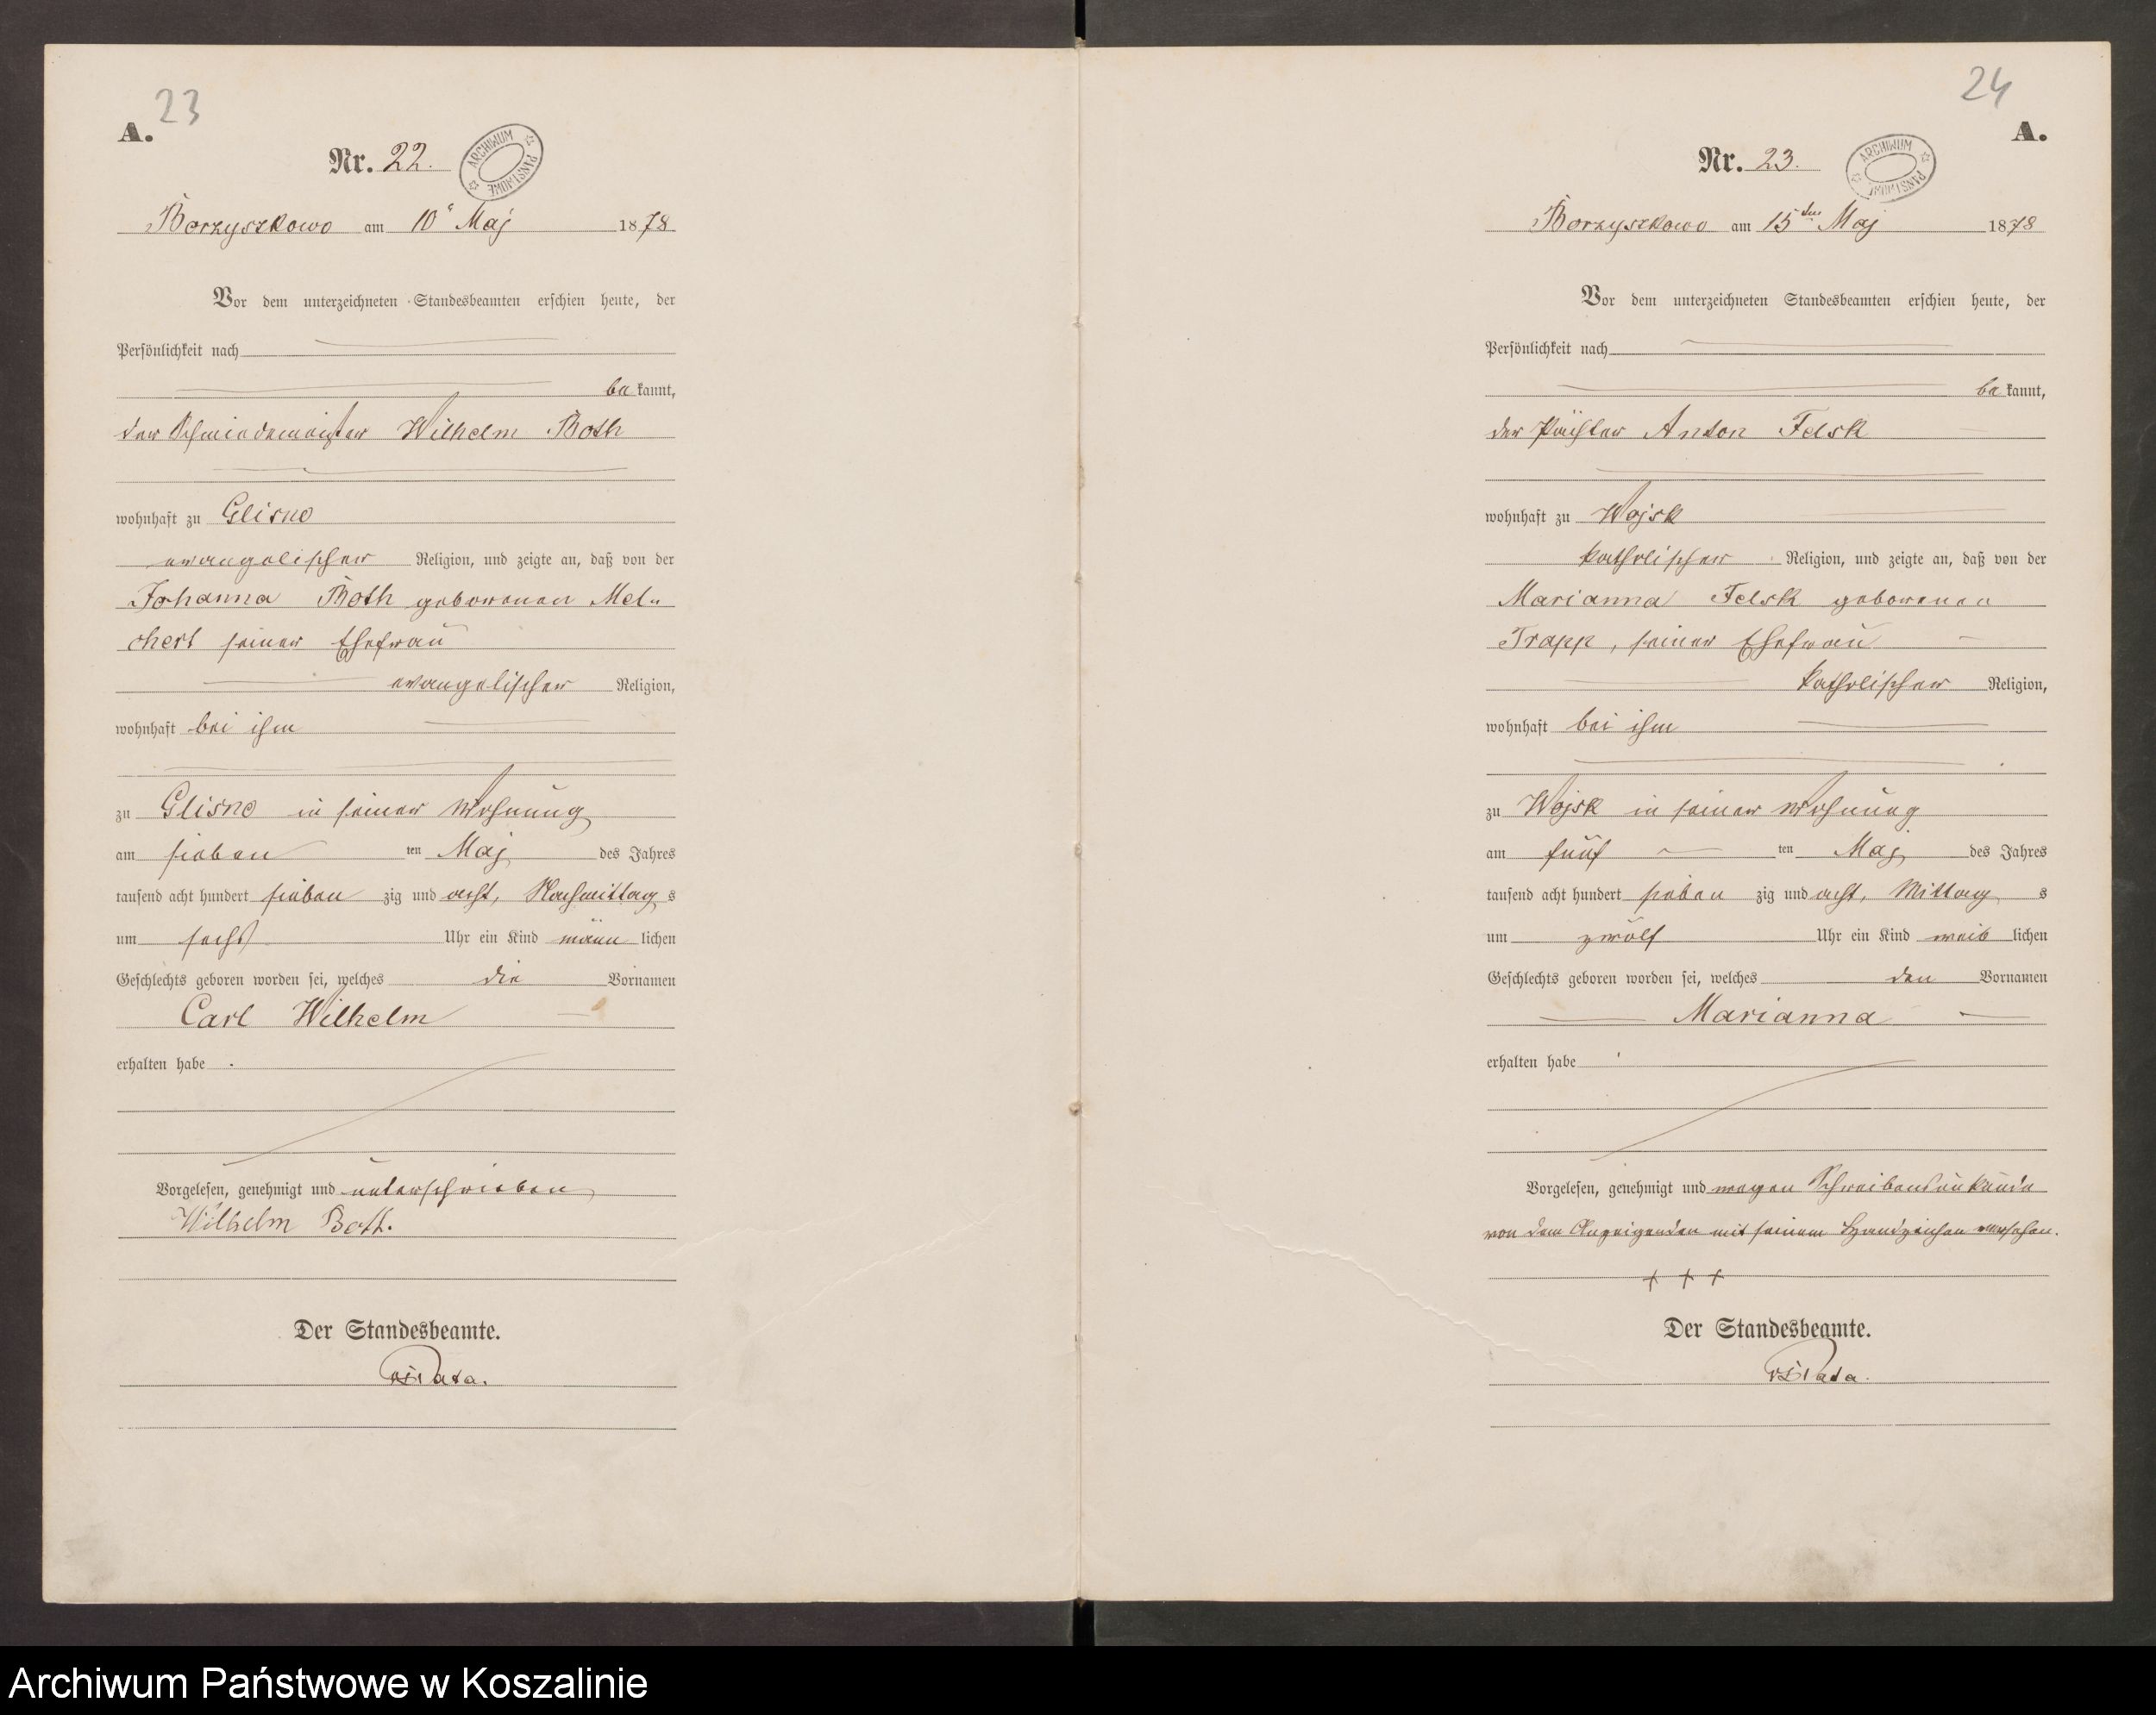 23
A.
Nr. 22.
ARCHIWUM PAŃSTWOWE
Borzyszkowo am 10 Maj 1878
Vor dem unterzeichneten Standesbeamten erschien heute, der
Persönlichkeit nach
be kannt,
der Schmiedemeister Wilhelm Both
wohnhaft zu Glisno
evangelischer Religion, und zeigte an, daß von der
Johanna Both geborenen Mel-
chert seiner Ehefrau
evangelischer Religion,
wohnhaft bei ihm
zu Glisno in seiner Wohnung
am sieben ten Maj des Jahres
tausend acht hundert sieben zig und acht, Nachmittag s
um sechs Uhr ein Kind männ lichen
Geschlechts geboren worden sei, welches die Vornamen
Carl Wilhelm
erhalten habe .
Vorgelesen, genehmigt und unterschrieben
Wilhelm Both.
Der Standesbeamte.
24
A.
Nr. 23.
ARCHIWUM PAŃSTWOWE
Borzyszkowo am 15ten Maj 1878
Vor dem unterzeichneten Standesbeamten erschien heute, der
Persönlichkeit nach
be kannt,
der Pächter Anton Felsk
wohnhaft zu Wojsk
katholischer Religion, und zeigte an, daß von der
Marianna Felsk geborenen
Trapp, seiner Ehefrau
katholischer Religion,
wohnhaft bei ihm
zu Wojsk in seiner Wohnung
am fünf ten Maj des Jahres
tausend acht hundert sieben zig und acht, Mittag s
um zwölf Uhr ein Kind weib lichen
Geschlechts geboren worden sei, welches den Vornamen
Marianna
erhalten habe
Vorgelesen, genehmigt und wegen Schreibensunkunde
von dem Anzeigenden mit seinem Handzeichen versehen.
+ + +
Der Standesbeamte.
Archiwum Państwowe w Koszalinie